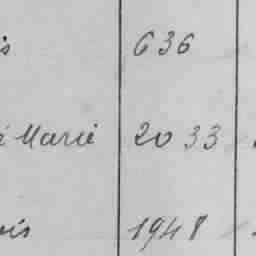 is 636
é Marie 2033
ois 1948